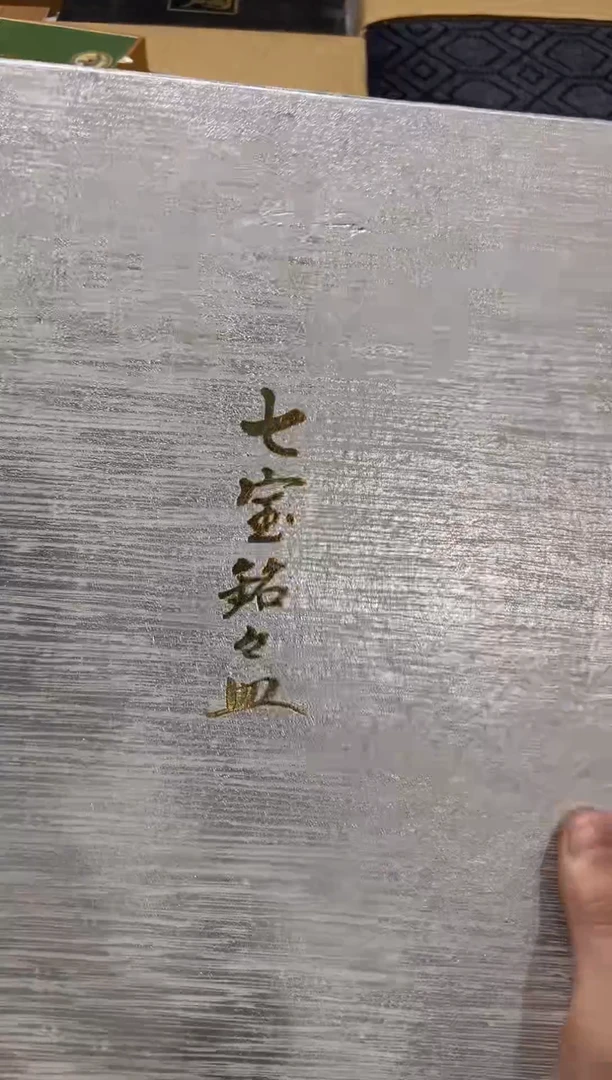 七宝銘々皿